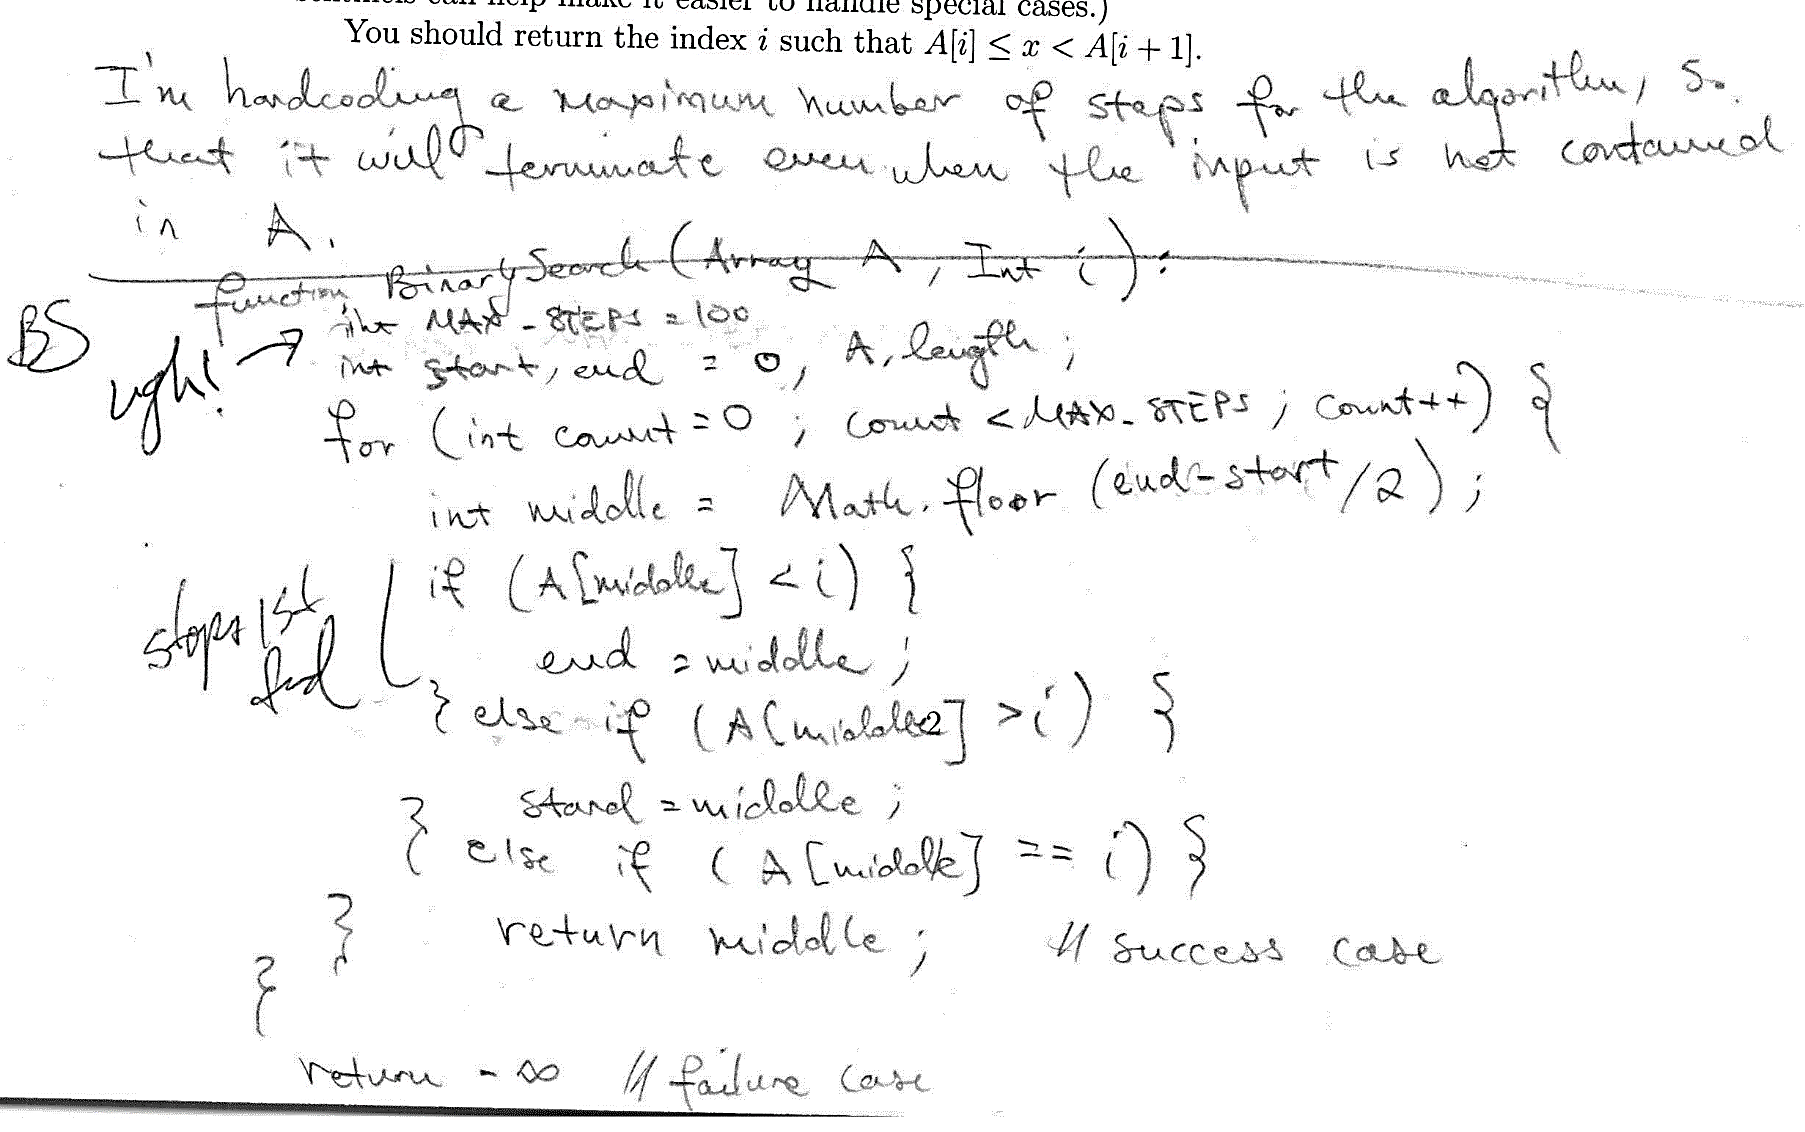 sentinels can help make it easier to handle special cases.)
You should return the index i such that A[i] ≤ x < A[i + 1].
I'm hardcoding a maximum number of steps for the algorithm, so
that it will terminate even when the input is not contained
in A.
function BinarySearch (Array A, Int i):
BS
ugh! → int MAX_STEPS = 100
int start, end = 0, A.length;
for (int count = 0 ; count < MAX_STEPS ; count++) {
int middle = Math.floor (end - start / 2) ;
if (A[middle] < i) {
stops 1st
find
end = middle ;
} else if (A[middle2] > i) {
stard = middle ;
} else if (A[middle] == i) {
return middle ; // success case
}
}
return - ∞ // failure case